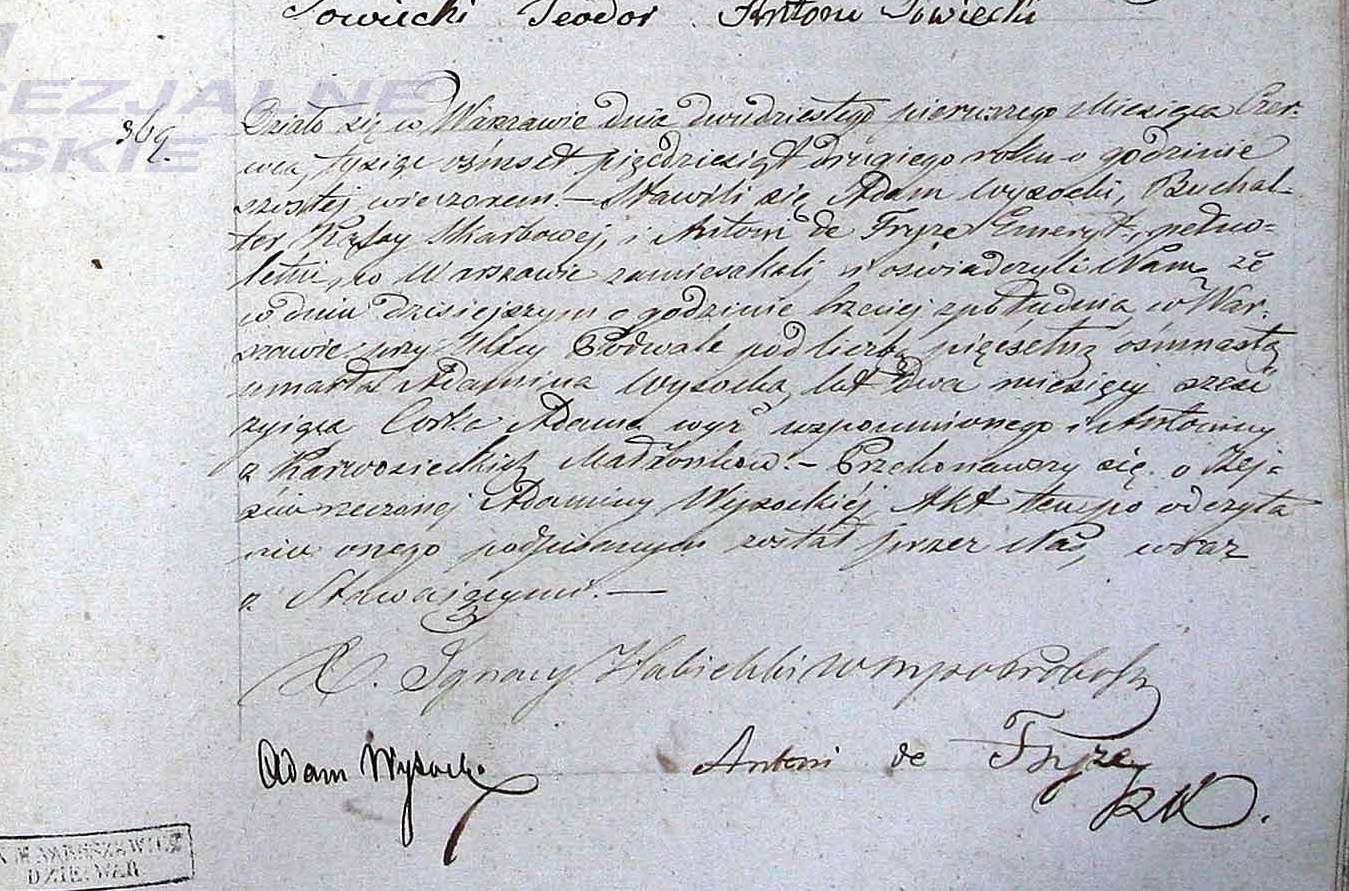 Sowiecki Teodor Antoni Sowiecki
EZJALNE
SKIE
369.
Działo się w Warszawie dnia dwudziestego pierwszego Miesiąca Czer-
wca, tysiąc ośmset pięćdziesiąt drugiego roku o godzinie
szóstej wieczorem. — Stawili się Adam Wysocki, Buchal-
ter Kassy Skarbowej, i Antoni de Fryze Emeryt, pełno-
letni, w Warszawie zamieszkali i oświadczyli Nam, że
w dniu dzisiejszym o godzinie trzeciej z południa w War-
szawie przy Ulicy Podwale pod liczbą pięćsetną ośmnastą
umarła Adamina Wysocka, lat dwa miesięcy sześć
żyjąca Córka Adama wyż wspomnionego i Antoniny
z Karwosieckich Małżonków. — Przekonawszy się o Zej-
ściu rzeczonej Adaminy Wysockiej, Akt ten po odczyta
niu onego podpisanym został przez Nas, wraz
z Stawającymi. —
X. Ignacy
Adam Wysocki
Antoni de Fryze
DZIE. WAR